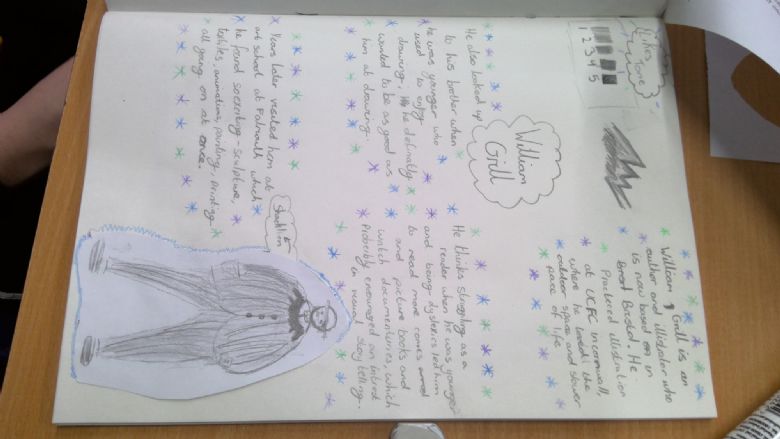 Likes
Tone
1 2 3 4 5
William
Grill
William Grill is an
author and illustrator who
is now based on in
Brist Bristed. He
Practered illustration
at UCFC in cornwall,
where he loved the
outdoor space and slower
pace of life
He also looked up
to his brother when
he was younger who
used to enjoy
drawing, he definatly
wanted to be as good as
him at drawing.
He thinks struggling as a
reader when he was younger
and being dyslexic led him
to read more comics and
and picture books and
watch documentures, which
Proberbly encouraged an intrest
in visual story telling.
Years later visited him at
art school at Falmouth which
he found so exciting - sculpture,
textiles, animations, painting, printing
all going on at once.
Shackleton